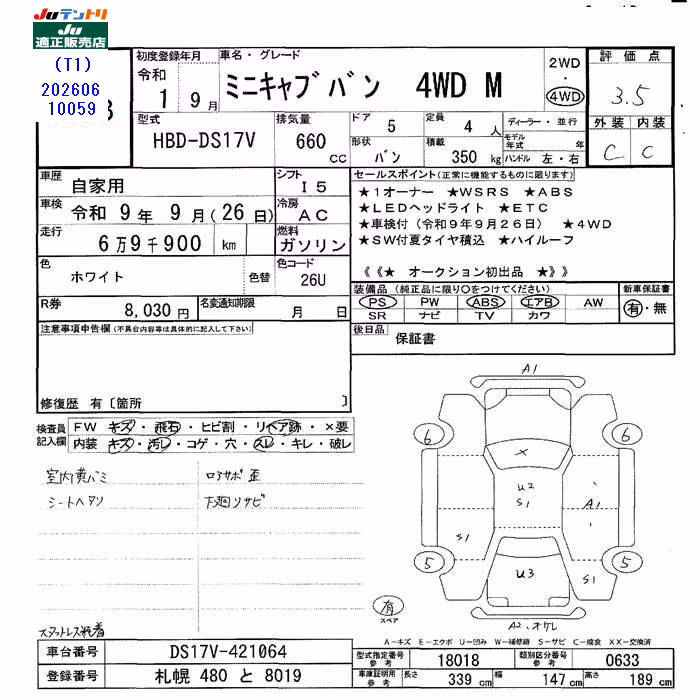 Juテントリ
Ju
適正販売店
(T1)
202606
10059
初度登録年月
令和
1 9月
車名・グレード
ミニキャブバン 4WD M
2WD
・
4WD
評価点
3.5
外装 内装
C C
型式
HBD-DS17V
排気量
660
CC
ドア 5
形状 バン
定員 4 人
積載 350 kg
ディーラー・並行
モデル年式 年
ハンドル 左・右
車歴
自家用
シフト
I5
車検
令和 9年 9月(26日)
冷房
AC
走行
6万9千900 km
燃料
ガソリン
色
ホワイト
色替
色コード
26U
R券
8,030円
名変通知期限
月 日
セールスポイント(正常に機能するものに限ります)
★1オーナー ★WSRS ★ABS
★LEDヘッドライト ★ETC
★車検付(令和9年9月26日) ★4WD
★SW付夏タイヤ積込 ★ハイルーフ
《《★ オークション初出品 ★》》
装備品(純正品に限り○をつけてください)
PS PW ABS エアB AW
SR ナビ TV カワ
新車保証書
有・無
後日品
保証書
注意事項申告欄(不具合内容等は具体的に記入して下さい)
修復歴 有〔箇所 〕
検査員
記入欄
FW キズ・飛石・ヒビ割・リペア跡・×要
内装 キズ・汚レ・コゲ・穴・スレ・キレ・破レ
室内黄バミ
シートヘタリ
ロアサポ歪
下廻リサビ
スタットレス装着
A1
6
6
×
U2
S1
A1
S1
5
5
U3
S1
有
スペア
A2.オケレ
A-キズ E-エクボ U-凹み W-補修跡 S-サビ C-腐食 XX-交換済
車台番号
DS17V-421064
登録番号
札幌 480 と 8019
型式指定番号
参考
18018
類別区分番号
参考
0633
車庫証明用
参考
長さ 339 cm
幅 147 cm
高さ 189 cm